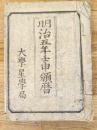 明治五年壬申頒暦
大學星學局